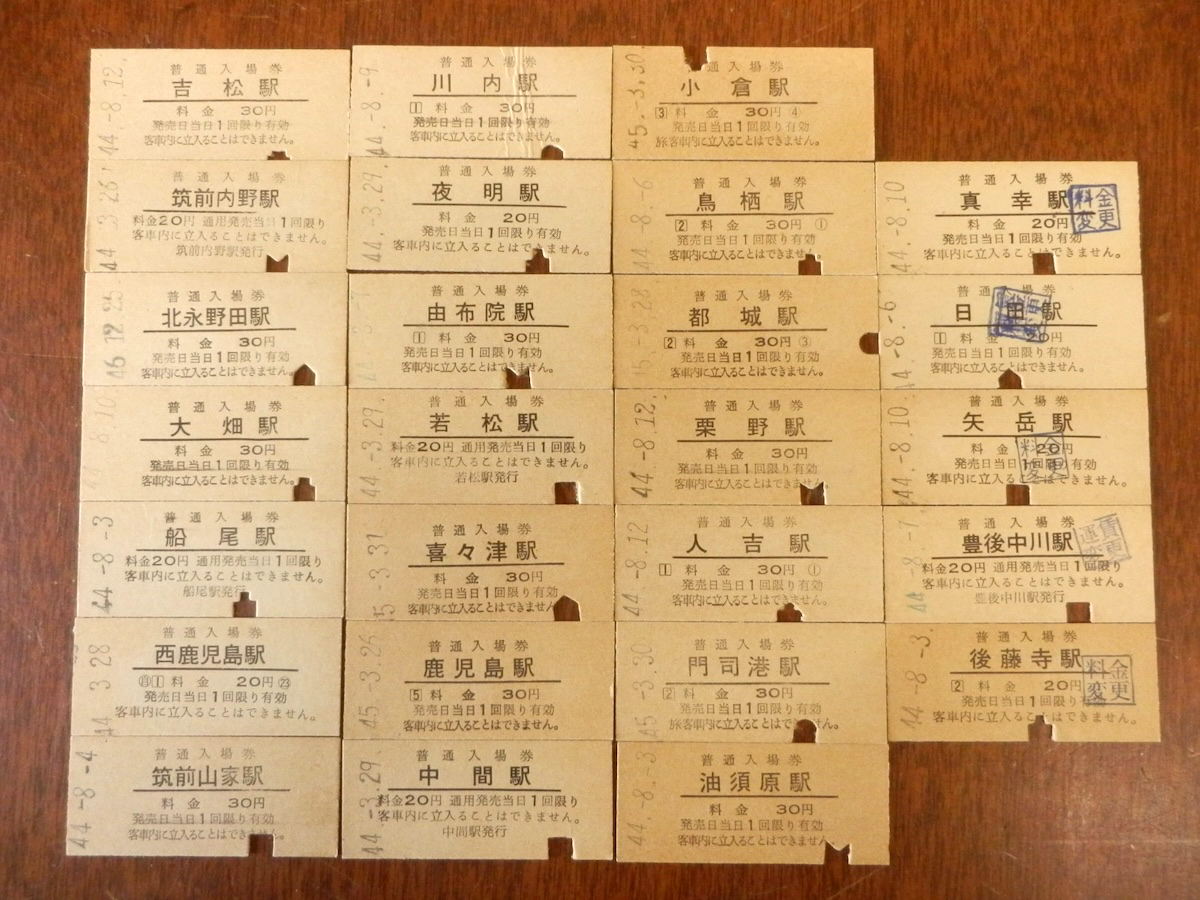 44.-8.12.
普通入場券
吉松駅
料金 30円
発売日当日1回限り有効
客車内に立入ることはできません。
44.3.26
普通入場券
筑前内野駅
料金20円 通用発売当日1回限り
客車内に立入ることはできません。
筑前内野駅発行
普通入場券
北永野田駅
料金 30円
発売日当日1回限り有効
客車内に立入ることはできません。
8.10
普通入場券
大畑駅
料金 30円
発売日当日1回限り有効
客車内に立入ることはできません。
44-8-3
普通入場券
船尾駅
料金20円 通用発売当日1回限り
客車内に立入ることはできません。
船尾駅発行
44 3.28
普通入場券
西鹿児島駅
① 料金 20円 ㉓
発売日当日1回限り有効
客車内に立入ることはできません。
44-8-4
普通入場券
筑前山家駅
料金 30円
発売日当日1回限り有効
客車内に立入ることはできません。
44.-8.-9.
普通入場券
川内駅
1 料金 30円
発売日当日1回限り有効
客車内に立入ることはできません。
44.-3.29.
普通入場券
夜明駅
料金 20円
発売日当日1回限り有効
客車内に立入ることはできません。
普通入場券
由布院駅
1 料金 30円
発売日当日1回限り有効
客車内に立入ることはできません。
44-3.29.
普通入場券
若松駅
料金20円 通用発売当日1回限り
客車内に立入ることはできません。
若松駅発行
45.-3.31.
普通入場券
喜々津駅
料金 30円
発売日当日1回限り有効
客車内に立入ることはできません。
45.-3.25
普通入場券
鹿児島駅
5 料金 30円
発売日当日1回限り有効
客車内に立入ることはできません。
44.-3.29.
普通入場券
中間駅
料金20円 通用発売当日1回限り
客車内に立入ることはできません。
中間駅発行
45.-3.30.
普通入場券
小倉駅
3 料金 30円 ④
発売日当日1回限り有効
旅客車内に立入ることはできません。
44-8.-6
普通入場券
鳥栖駅
2 料金 30円 ①
発売日当日1回限り有効
客車内に立入ることはできません。
45.-3.28
普通入場券
都城駅
2 料金 30円 ③
発売日当日1回限り有効
客車内に立入ることはできません。
44-8.12.
普通入場券
栗野駅
料金 30円
発売日当日1回限り有効
客車内に立入ることはできません。
44-8.12
普通入場券
人吉駅
1 料金 30円 ①
発売日当日1回限り有効
客車内に立入ることはできません。
45.-3.30
普通入場券
門司港駅
2 料金 30円
発売日当日1回限り有効
旅客車内に立入ることはできません。
44.-8.-3
普通入場券
油須原駅
料金 30円
発売日当日1回限り有効
客車内に立入ることはできません。
44.-8.10
普通入場券
真幸駅
料金変更
料金 20円
発売日当日1回限り有効
客車内に立入ることはできません。
44-8.-6
普通入場券
日田駅
1 料金
発売日当日1回限り有効
客車内に立入ることはできません。
44.-8.10
普通入場券
矢岳駅
料金 20円
料金変更
発売日当日1回限り有効
客車内に立入ることはできません。
44-8.-7
普通入場券
豊後中川駅
運賃変更
料金20円 通用発売当日1回限り
客車内に立入ることはできません。
豊後中川駅発行
44-8-3.
普通入場券
後藤寺駅
料金変更
2 料金 20円
発売日当日1回限り有効
客車内に立入ることはできません。